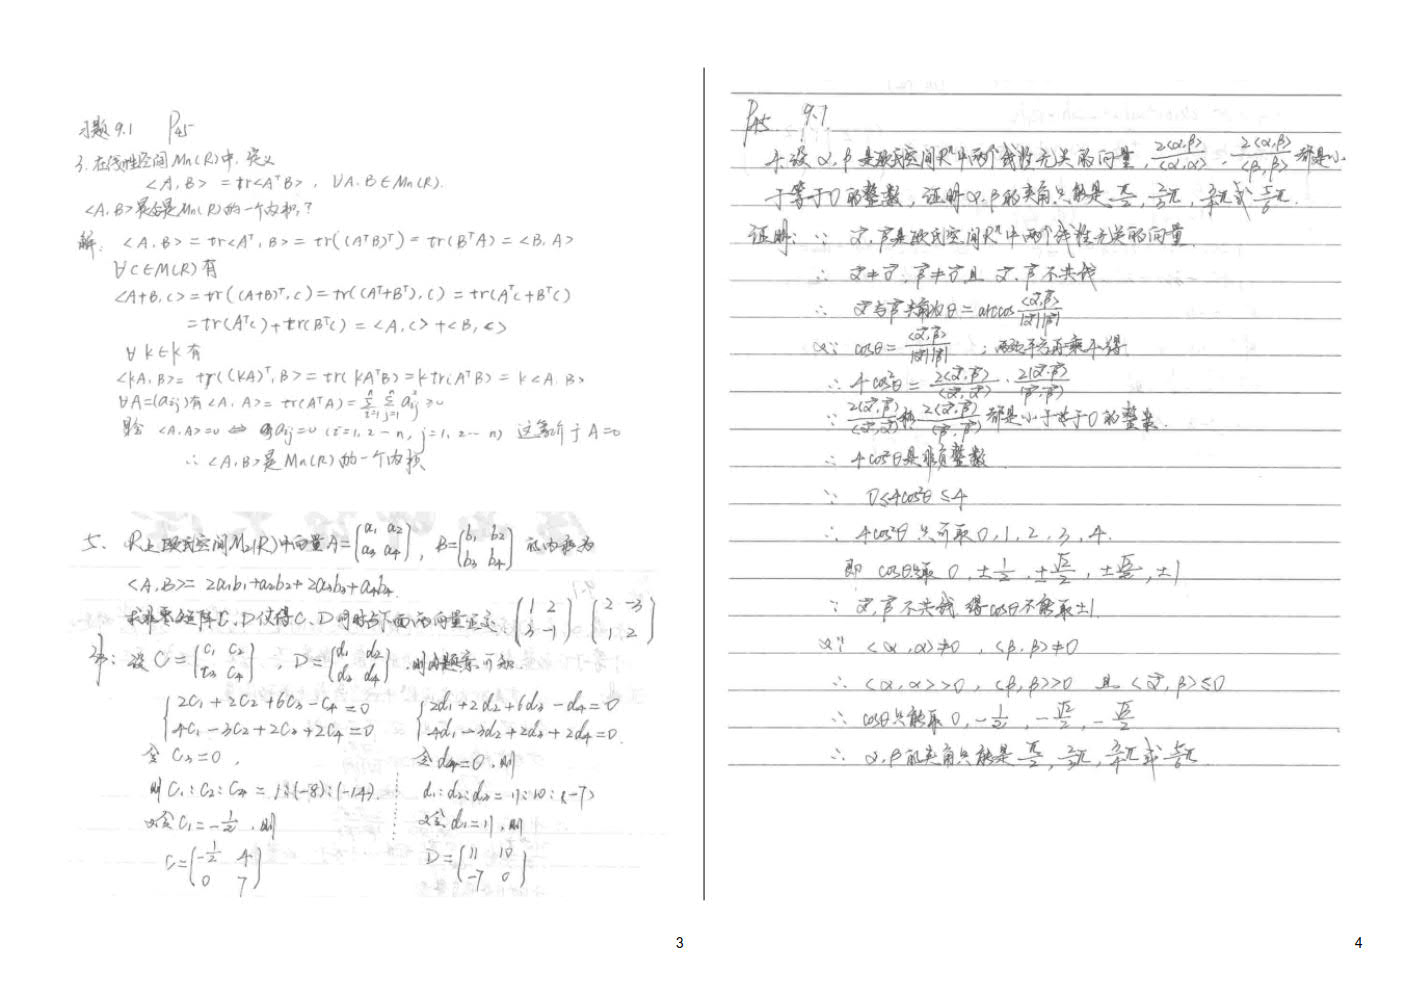 习题9.1 P45
3. 在线性空间Mn(R)中,定义
<A,B> = tr<AᵀB>, ∀A.B∈Mn(R).
<A,B>是否是Mn(R)的一个内积?
解: <A,B> = tr<Aᵀ,B> = tr((AᵀB)ᵀ) = tr(BᵀA) = <B,A>
∀C∈M(R)有
<A+B,C> = tr((A+B)ᵀ,C) = tr((Aᵀ+Bᵀ),C) = tr(AᵀC+BᵀC)
= tr(AᵀC)+tr(BᵀC) = <A,C>+<B,C>
∀k∈k有
<kA,B> = tr((kA)ᵀ,B> = tr(kAᵀB) = ktr(AᵀB) = k<A.B>
∀A=(aij)有<A,A> = tr(AᵀA) = Σⁿᵢ₌₁ Σⁿⱼ₌₁ a²ij ≥0
且<A,A>=0 ⇔ aij=0 (i=1,2…n, j=1,2…n) 这等价于A=0
∴ <A,B>是Mn(R)的一个内积
五. R上欧氏空间M₂(R)中向量A=(a₁ a₂ a₃ a₄), B=(b₁ b₂ b₃ b₄)的内积为
<A,B> = 2a₁b₁+a₂b₂+2a₃b₃+a₄b₄.
求非零矩阵C、D使得C、D同时与下面两向量正交: (1 2 3 -1) (2 -3 1 2)
解: 设C=(c₁ c₂ c₃ c₄), D=(d₁ d₂ d₃ d₄).则由题意可知.
{2c₁+2c₂+6c₃-c₄=0 {2d₁+2d₂+6d₃-d₄=0
4c₁-3c₂+2c₃+2c₄=0 4d₁-3d₂+2d₃+2d₄=0.
令C₃=0, 令d₄=0.则
则C₁:C₂:C₄=1:(-8):(-14). d₁:d₂:d₃=11:10:(-7)
又令C₁=-1/2.则 又令d₁=11,则
C=(-1/2 4 0 7) D=(11 10 -7 0)
3
P45 9.1
7.设α,β是欧氏空间Rⁿ中两个线性无关的向量, 2<α,β>/<α,α>, 2<α,β>/<β,β>都是小
于等于0的整数,证明α.β的夹角只能是π/2, 2/3π, 3/4π或5/6π.
证明: ∵ α⃗,β⃗是欧氏空间Rⁿ中两个线性无关的向量.
∴ α⃗≠0⃗,β⃗≠0⃗且α⃗.β⃗不共线
∴ α⃗与β⃗夹角为θ=arccos <α⃗,β⃗>/|α⃗||β⃗|
又∵ cosθ=<α⃗,β⃗>/|α⃗||β⃗|; 两边平方再乘4得
∴ 4cos²θ=2<α⃗,β⃗>/<α⃗,α⃗>·2<α⃗,β⃗>/<β⃗,β⃗>
∵ 2<α⃗,β⃗>/<α⃗,α⃗>和2<α⃗,β⃗>/<β⃗,β⃗>都是小于等于0的整数.
∴ 4cos²θ是非负整数
∵ 0≤4cos²θ≤4
∴ 4cos²θ只可取0,1,2,3,4.
即 cosθ只取0, ±1/2, ±√2/2, ±√3/2, ±1
∵ α⃗,β⃗不共线 得cosθ不能取±1
又∵ <α,α>≠0, <β,β>≠0
∴ <α,α>>0, <β,β>>0 且<α⃗,β>≤0
∴ cosθ只能取0, -1/2, -√2/2, -√3/2
∴ α,β的夹角只能是π/2, 2/3π, 3/4π或5/6π.
4